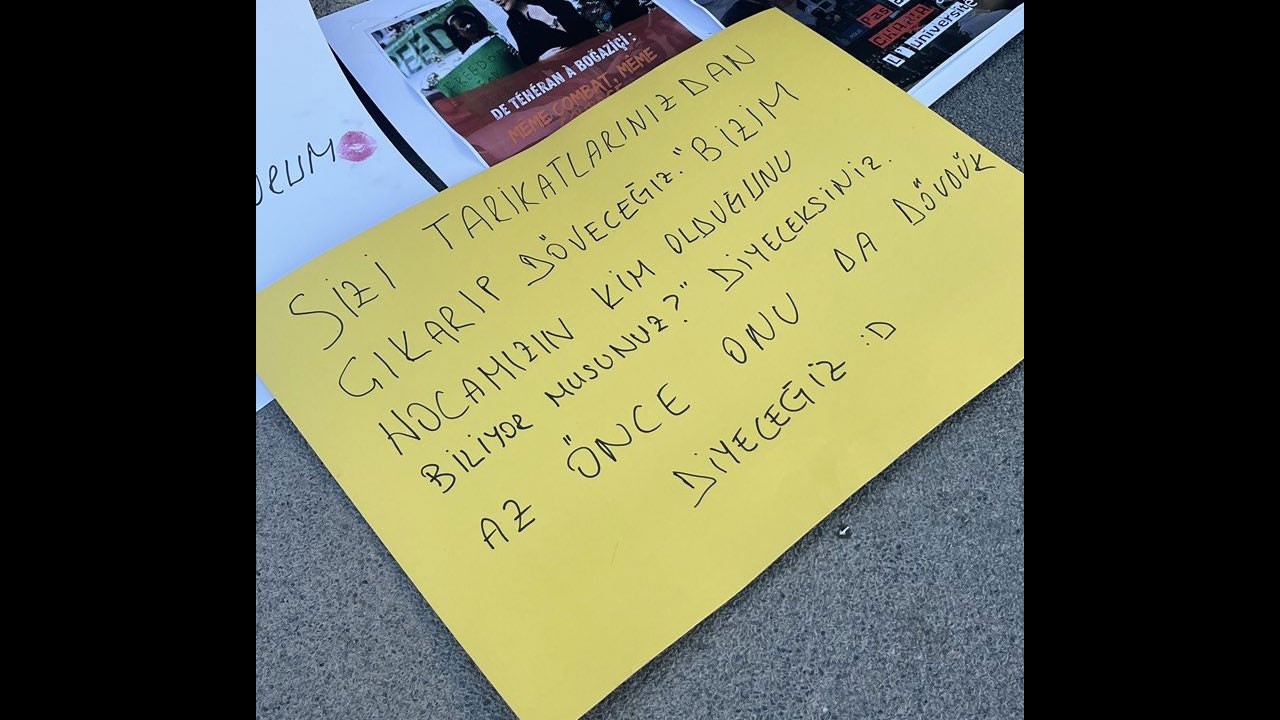 DE TÉHÉRAN À BOĞAZİÇİ :
MÊME COMBAT, MÊME
PAS
CHARIA
L'université
SİZİ TARİKATLARINIZDAN
ÇIKARIP DÖVECEĞİZ. "BİZİM
HOCAMIZIN KİM OLDUĞUNU
BİLİYOR MUSUNUZ?" DİYECEKSİNİZ.
AZ ÖNCE ONU DA DÖVDÜK
DİYECEĞİZ :D